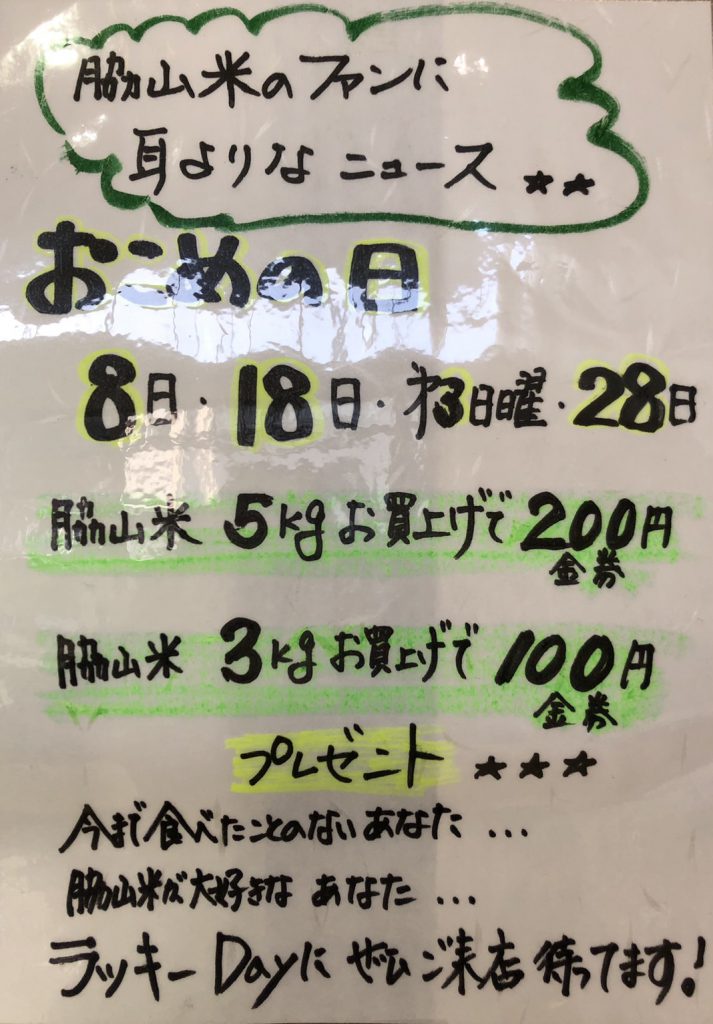 脇山米のファンに
耳よりなニュース ★★
おこめの日
8日・18日・才3日曜・28日
脇山米 5kgお買上げで200円
金券
脇山米 3kgお買上げで100円
金券
プレゼント ★★★
今まで食べたことのないあなた...
脇山米が大好きなあなた...
ラッキーDayにぜひご来店待ってます!